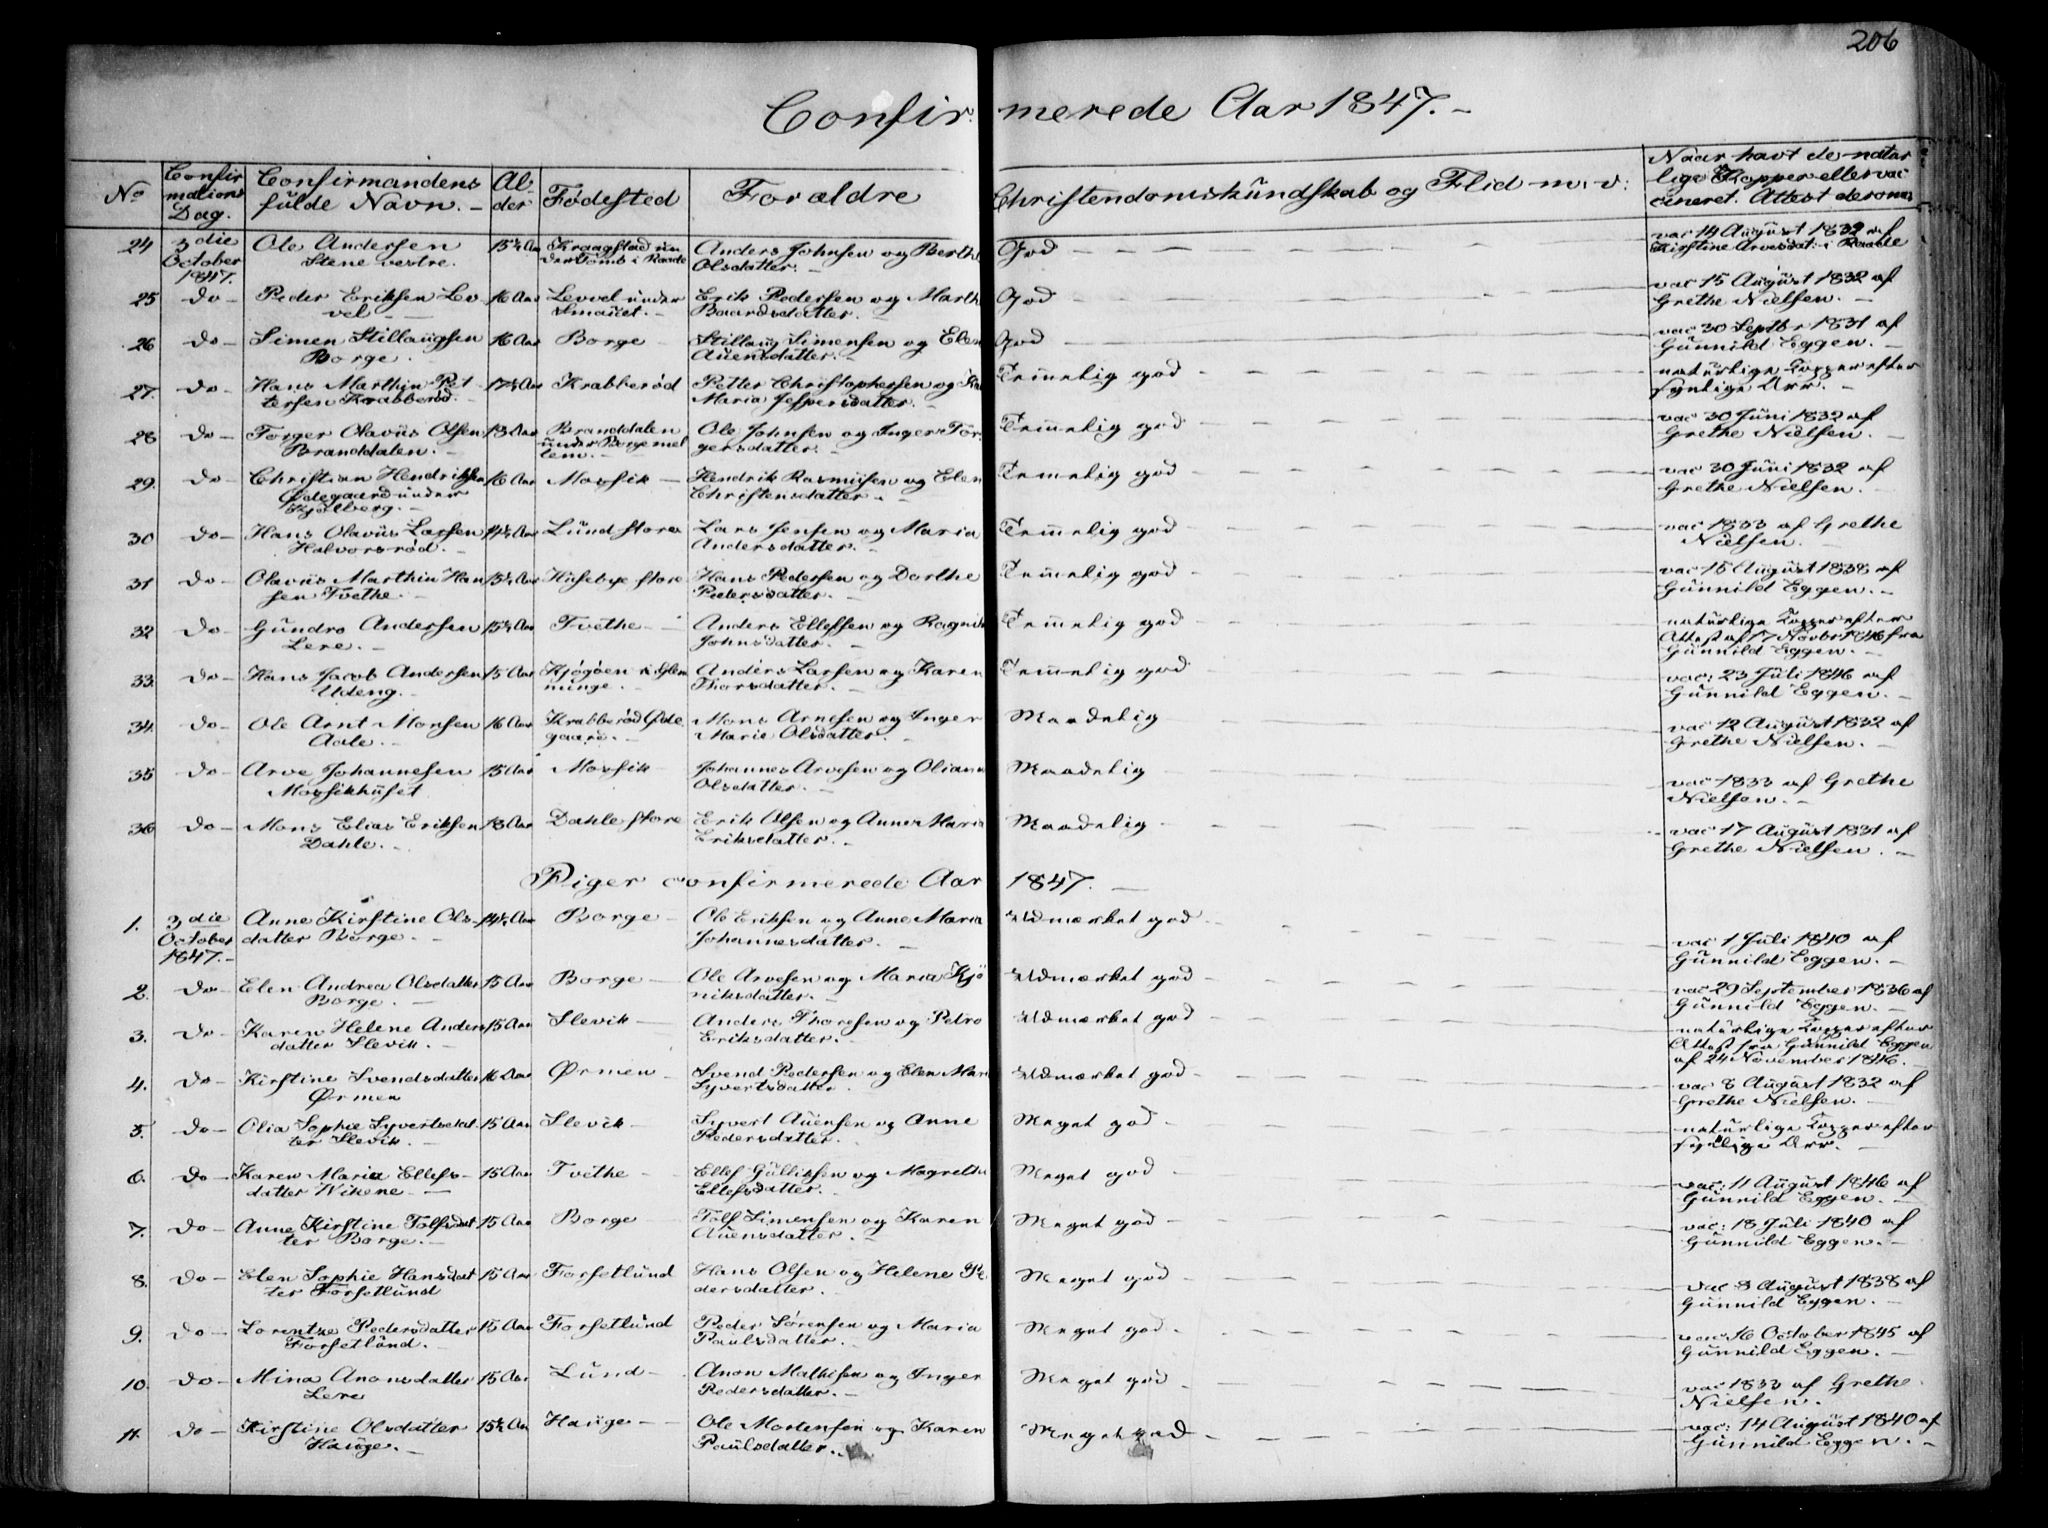 206
Confirmerede Aar 1847. -
No
Confir
mations
Dag.
Confirmandens
fulde Navn. -
Al-
der
Fødested
Forældre
Christendomskundskab og Flid m. v:
Naar havt de natur
lige Kopper eller vac
cineret. Attest derom
24 3die Ole Andersen 15½ Aar Kraagstad un Anders Johnsen og Berthe God vac 14 August 1832 af
October Stene vestre. der Tomb i Raade Olsdatter. - Kirstine Arvesdat: i Raade
1847.
25 do - Peder Eriksen Lo 16 Aar Level under Erik Pedersen og Marth God vac 15 August 1832 af
vel Smauet. - Baardsdatter. - Grethe Nielsen. -
26 do - Simen Stillaugsen 16 Aar Borge Stillaug Simensen og Elen God vac 30 Septbr 1831 af
Borge. Auensdatter. - Gunnild Eggen. -
27. do - Hans Marthin Pet 17½ Aar Krabberød Petter Christophersen og Temelig god naturlige Kopper efter
tersen Krabberød. Maria Jespersdatter. - synlige Arr. -
28 do - Torger Olavus Olsen 18 Aar Branddalen Ole Johnsen og Inger Tor Temelig god vac 30 Juni 1832 af
Branddalen. - under Borge mel Torgersdatter. - Grethe Nielsen. -
lem. -
29. do - Christian Hendriksen 16 Aar Mossik - Hendrik Rasmusen og Elen Temelig god vac 30 Juni 1832 af
Ødegaard under Christensdatter. - Grethe Nielsen. -
Kjølberg. -
30 do - Hans Olavus Larsen 14½ Aar Lund store Lars Jensen og Maria Temelig god vac 1833 af Grethe
Halvorsrød. - Andersdatter. - Nielsen. -
31 do - Olavus Marthin Han 15½ Aar Husebye store Hans Pedersen og Dorthe Temelig god vac 15 August 1838 af
sen Tvethe. - Pedersdatter. - Gunnild Eggen. -
32 do - Gundro Andersen 15½ Aar Tvethe - Anders Ellefsen og Ragnil Temelig god naturlige Kopper efter
Lere. - Johnsdatter. - Attest af 17 Novbr 1846 fra
Gunnild Eggen. -
33. do - Hans Jacob Andersen 15 Aar Kjøgøen i Glem Anders Larsen og Karen Temelig god vac: 23 Juli 1846 af
Udeng. - minge. - Thorsdatter. - Gunnild Eggen. -
34. do - Ole Arnt Monsen 16 Aar Krabberød Øde Mons Arnesen og Inger Maadelig vac 12 August 1832 af
Aale. - gaard. - Marie Olsdatter. - Grethe Nielsen. -
35 do - Arve Johannesen 15 Aar Mossik Johannes Arvesen og Oliana Maadelig vac 1833 af Grethe
Mossikhuset Olsdatter. - Nielsen. -
36 do - Mons Elias Eriksen 18 Aar Dahle store Erik Olsen og Anne Maria Maadelig vac 17 August 1831 af
Dahle. - Eriksdatter. - Grethe Nielsen. -
Piger confirmerede Aar 1847. -
1. 3die Anne Kirstine Ols- 14½ Aar Borge - Ole Eriksen og Anne Maria Udmærket god vac 1 Juli 1840 af
October datter Borge. - Johannesdatter. - Gunnild Eggen. -
1847. -
2. do - Elen Andrea Olsdatter 15 Aar Borge - Ole Arvesen og Maria Kjø Udmærket god vac 29 September 1836 af
Borge. - niksdatter. - Gunnild Eggen. -
3. do - Karen Helene Anders 15 Aar Slevik - Anders Thoresen og Petro Udmærket god naturlige Kopper efter
datter Slevik. - Eriksdatter. - Attest fra Gunnild Eggen
af 24 November 1846.
4. do - Kirstine Svendsdatter 16 Aar Ørmen - Svend Pedersen og Elen Mari Udmærket god vac 8 August 1832 af
Ørmen Syvertsdatter Grethe Nielsen. -
5. do - Olia Sophie Syvertsdat 15 Aar Slevik - Syvert Auensen og Anne Meget god naturlige Kopper efter
ter Slevik. - Pedersdatter. synlige Arr. -
6. do - Karen Maria Ellefs- 15 Aar Tvethe - Ellef Gulliksen og Magrethe Meget god vac: 11 August 1846 af
datter Wikene. - Ellefsdatter. - Gunnild Eggen. -
7. do - Anne Kirstine Tolfsdat 15 Aar Borge - Tolf Simensen og Karen Meget god vac: 18 Juli 1840 af
ter Borge. - Auensdatter. - Gunnild Eggen. -
8. do - Elen Sophie Hansdat 15 Aar Forsetlund Hans Olsen og Helene Pe Meget god vac 8 August 1838 af
ter Forsetlund dersdatter. Gunnild Eggen. -
9. do - Lorentze Pedersdatter 15 Aar Forsetlund Peder Sørensen og Maria Meget god vac 16 October 1845 af
Forsetlund. - Paulsdatter. - Gunnild Eggen. -
10. do - Mina Anonsdatter 15 Aar Lund - Anon Mathisen og Inger Meget god vac 1833 af Grethe
Lere Pedersdatter. - Nielsen. -
11. do - Kirstine Olsdatter 15½ Aar Hauge - Ole Mortensen og Karen Meget god vac: 14 August 1840 af
Hauge. - Paulsdatter. - Gunnild Eggen. -